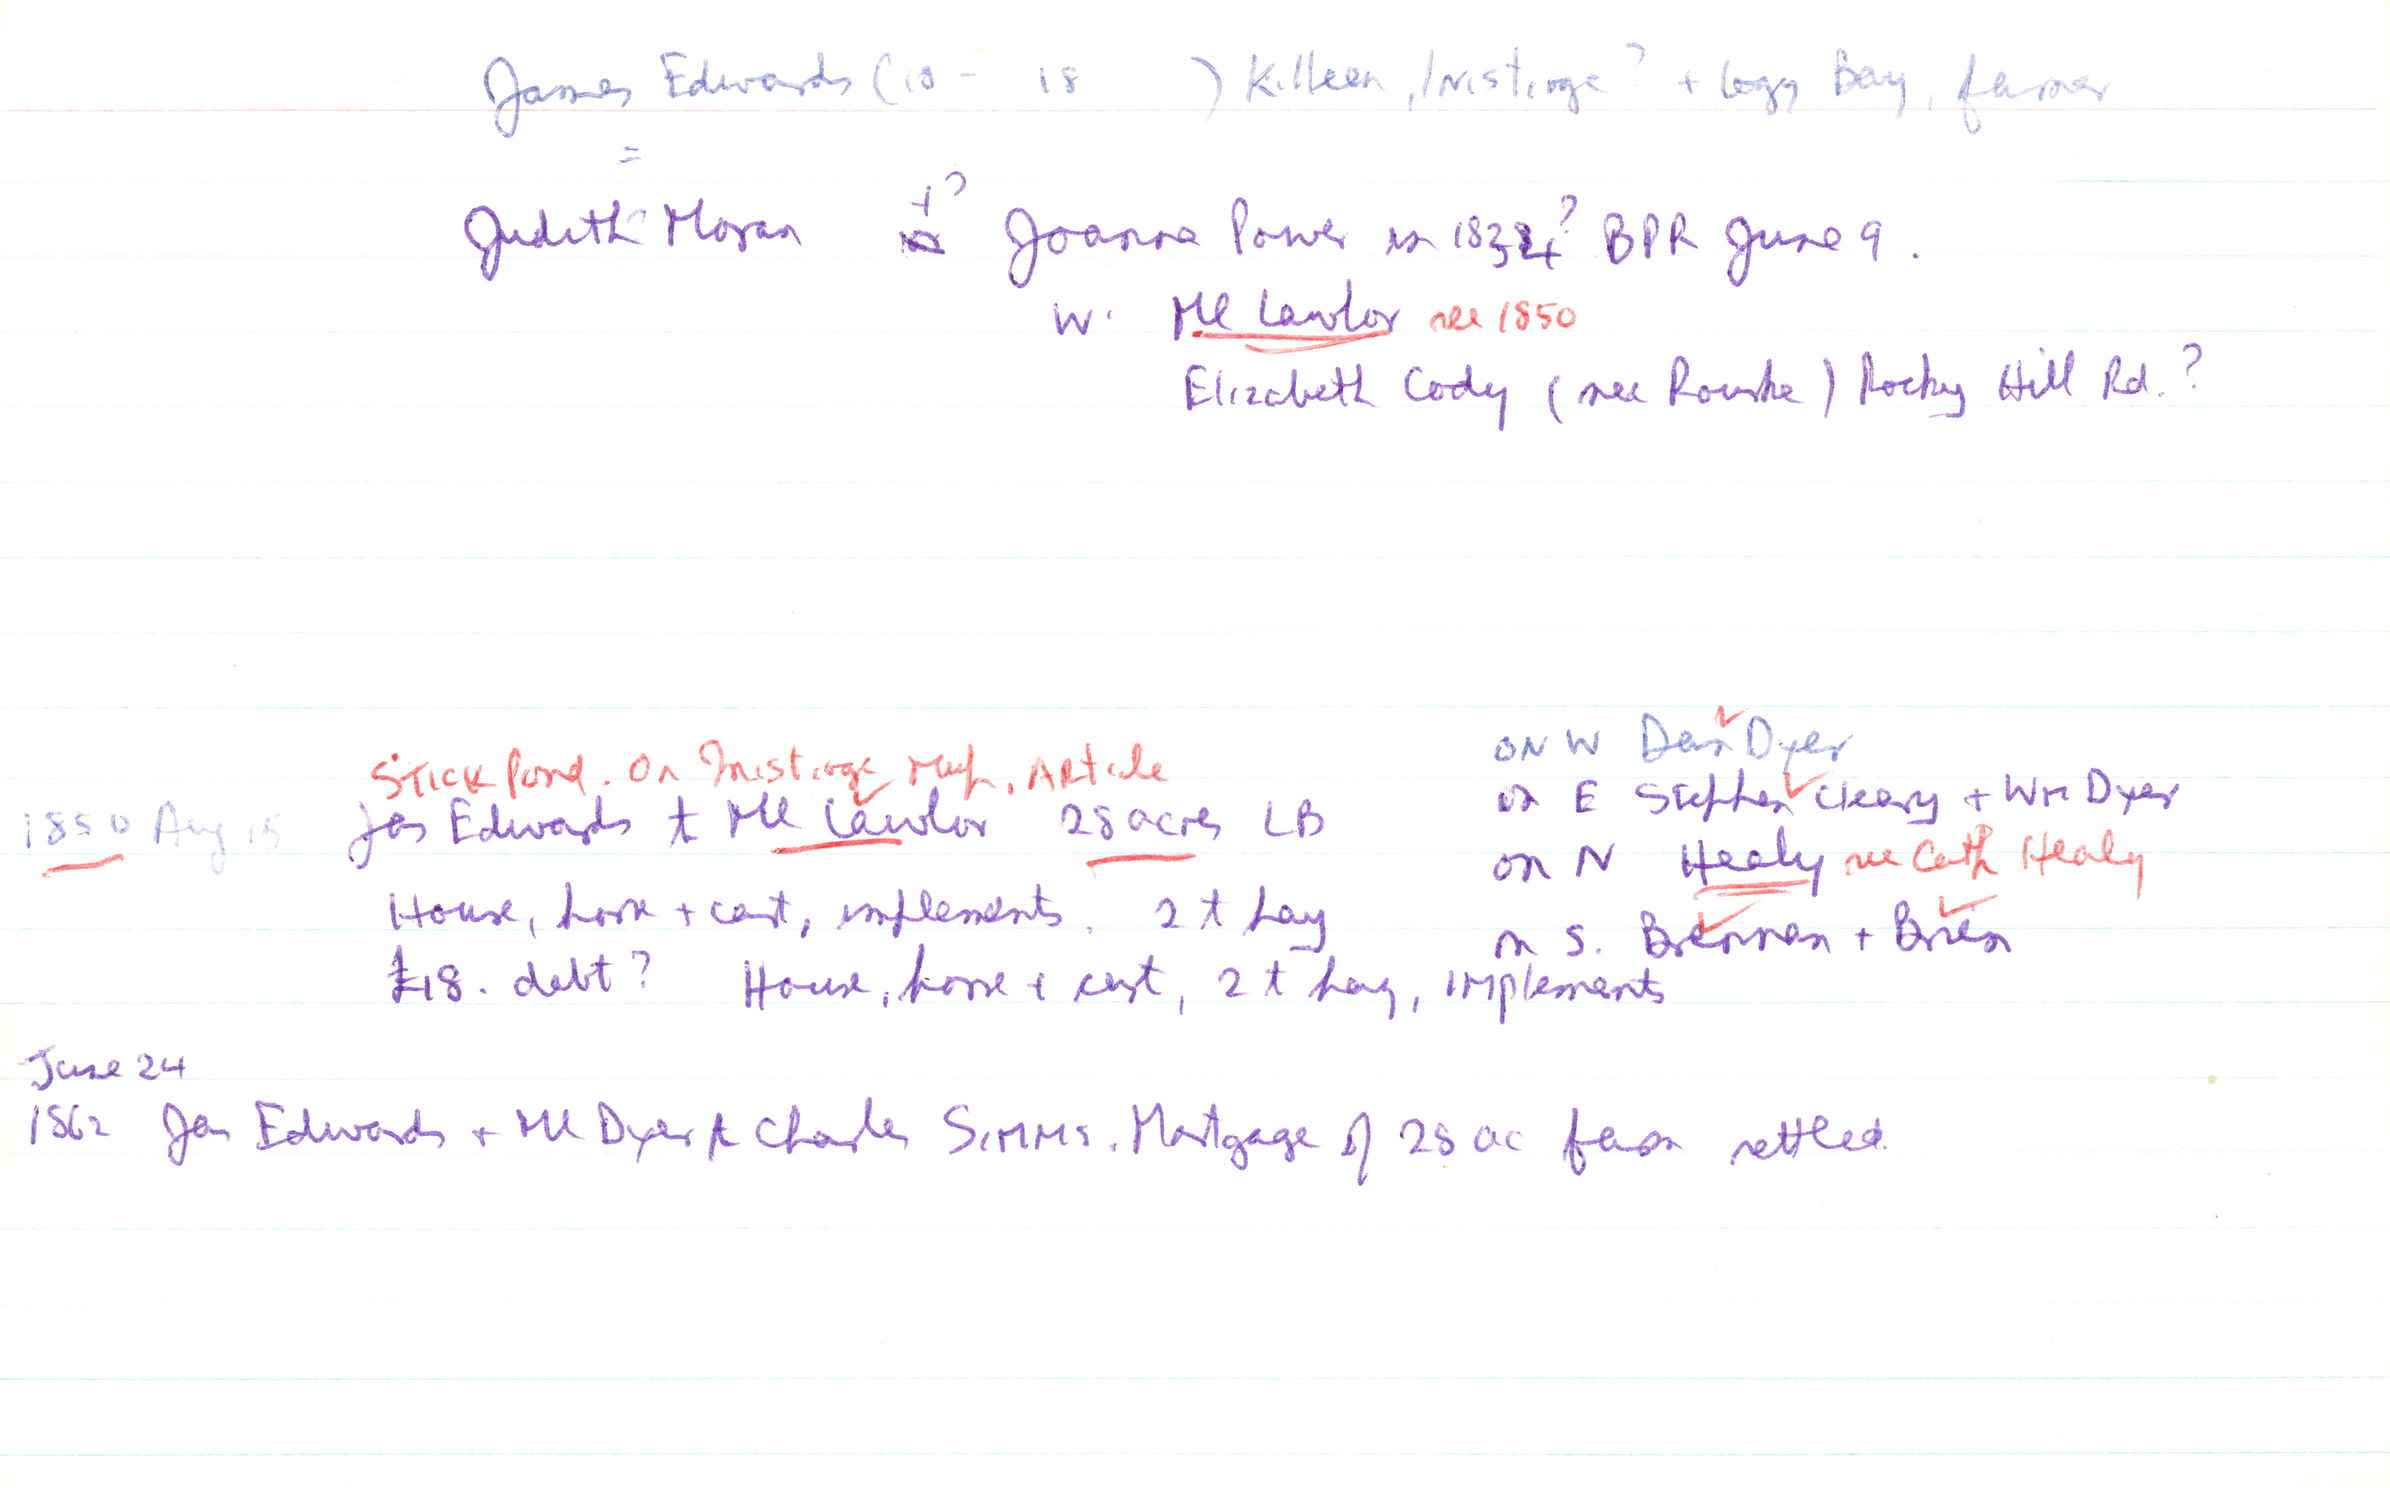 James Edwards (18 - 18 ) Killeen, Inistioge? + Logy Bay, farmer
=
Judith Moran +? Joanna Power in 1834? BPR June 9.
W. Ml Lawlor see 1850
Elizabeth Cody (nee Rourke) Rocky Hill Rd.?
on W Dan Dyer
Stick Pond. On Inistioge Map. Article
on E Stephen Cleary + Wm Dyer
1850 Aug 15 Jas Edwards to Ml Lawlor 28 acres LB
on N Healy see Cath Healy
House, horse + cart, implements. 2 t hay
on S. Brennan + Brien
£18. debt? House, horse + cart, 2 t hay, implements
June 24
1862 Jas Edwards + Ml Dyer to Charles Simms. Mortgage of 28 ac farm settled